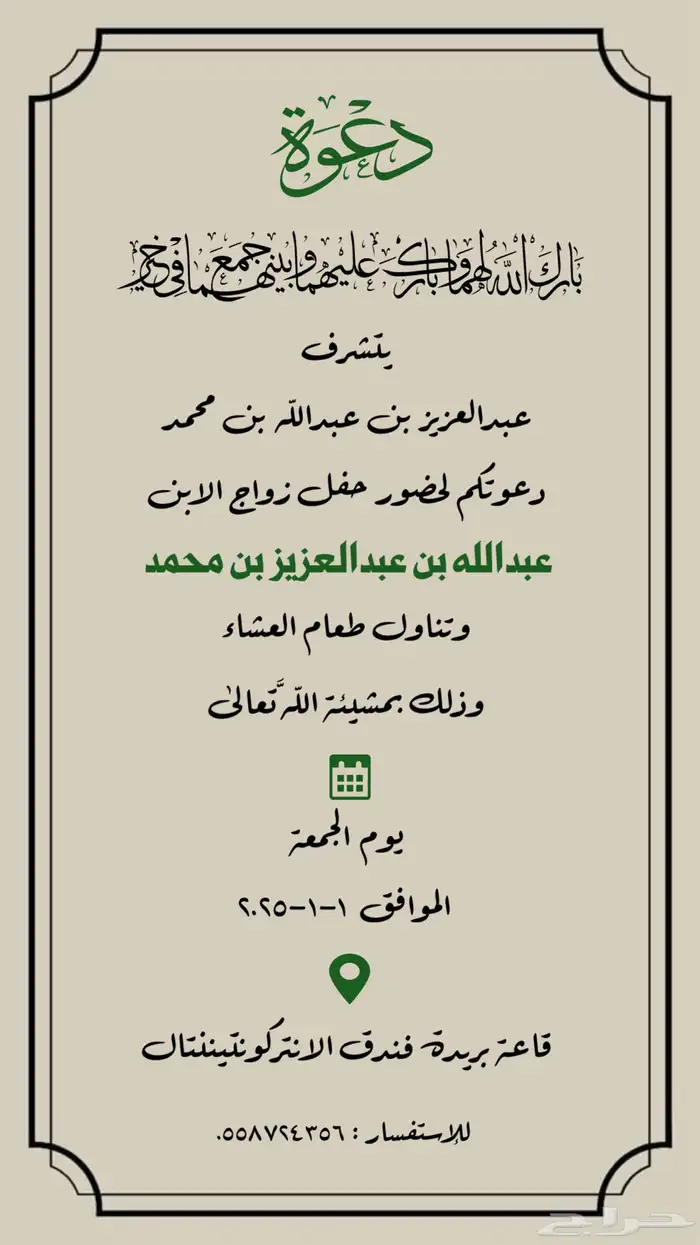 دعوة
بارك الله لهما وبارك عليهما وجمع بينهما في خير
يتشرف
عبدالعزيز بن عبدالله بن محمد
دعوتكم لحضور حفل زواج الابن
عبدالله بن عبدالعزيز بن محمد
وتناول طعام العشاء
وذلك بمشيئة الله تعالى
يوم الجمعة
الموافق ١-١-٢٠٢٥
قاعة بريدة فندق الانتركونتيننتال
للإستفسار : ٠٥٥٨٧٢٤٣٥٦
حراج